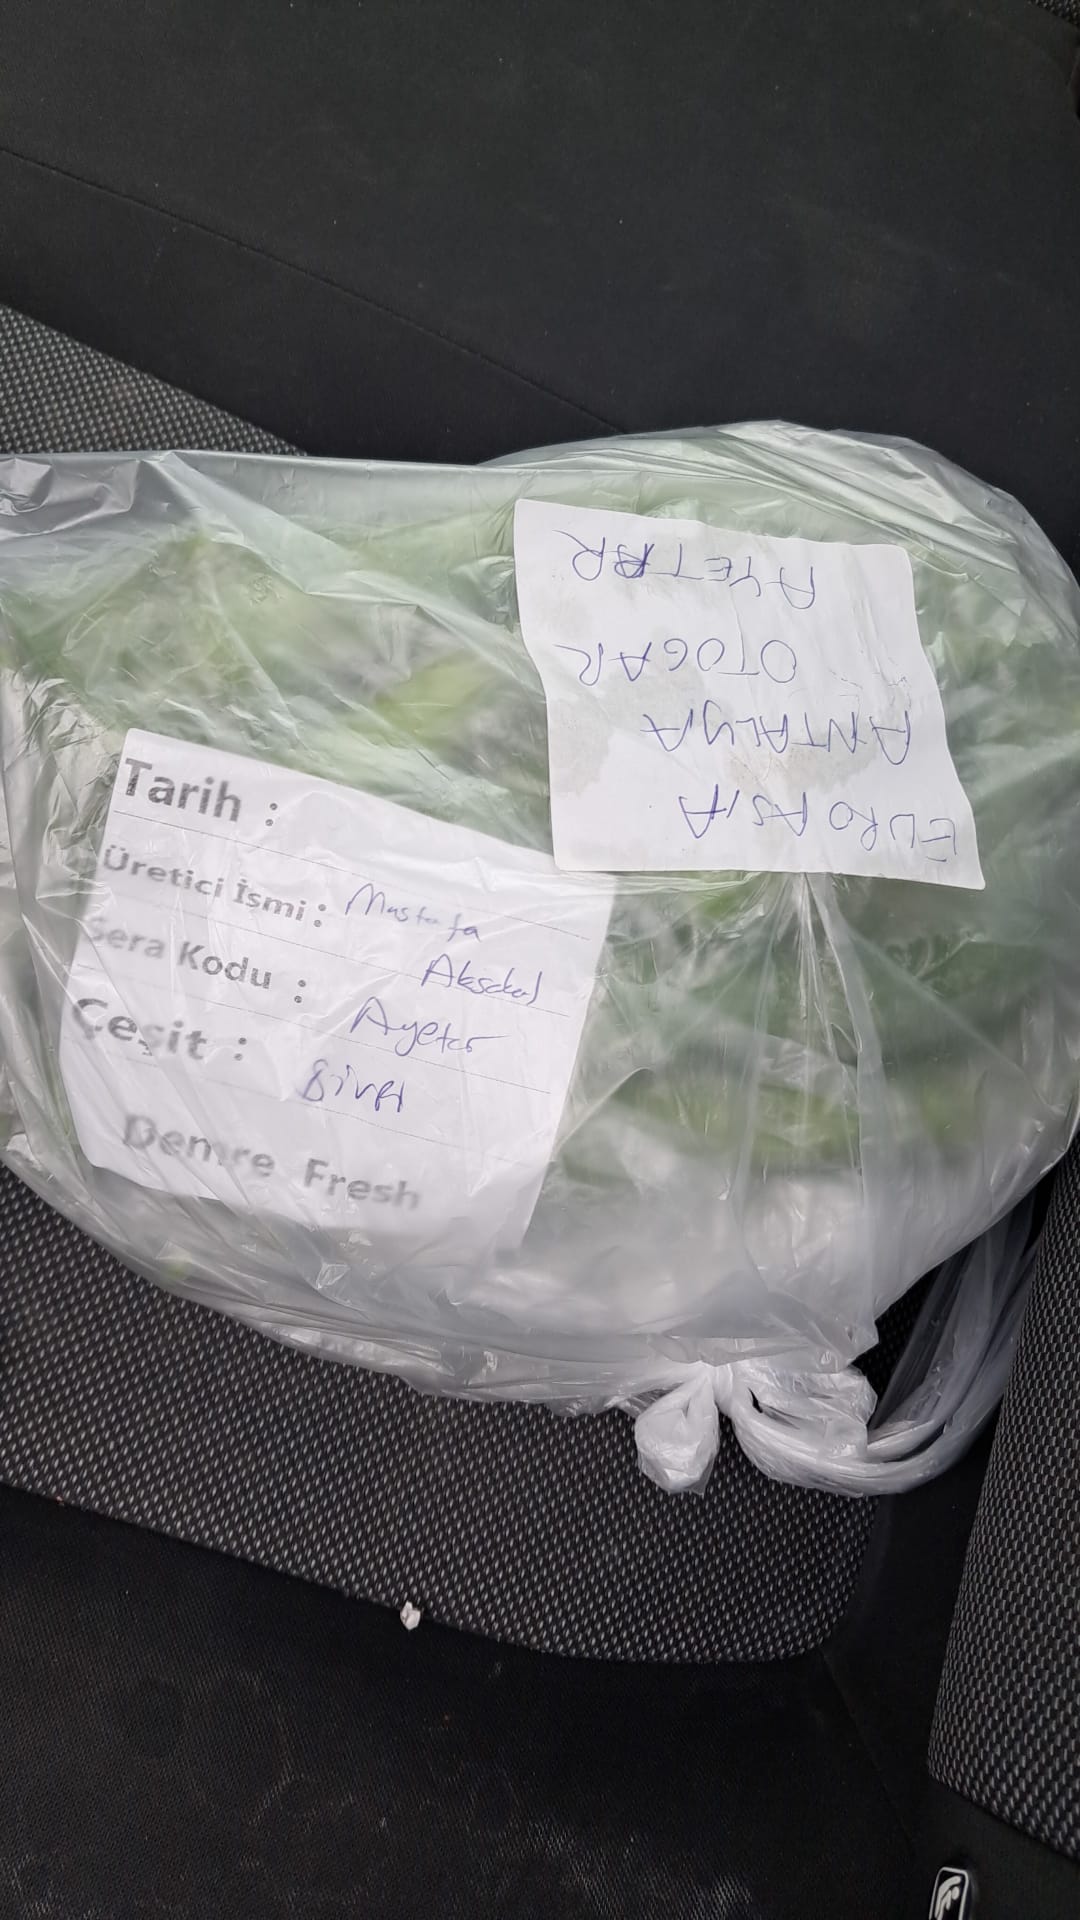 AYETAR
OTOGAR
ANTALYA
EUROASIA
Tarih :
Üretici İsmi : Mustafa
Aksakal
Sera Kodu : Ayetar
Çeşit : Biber
Demre Fresh